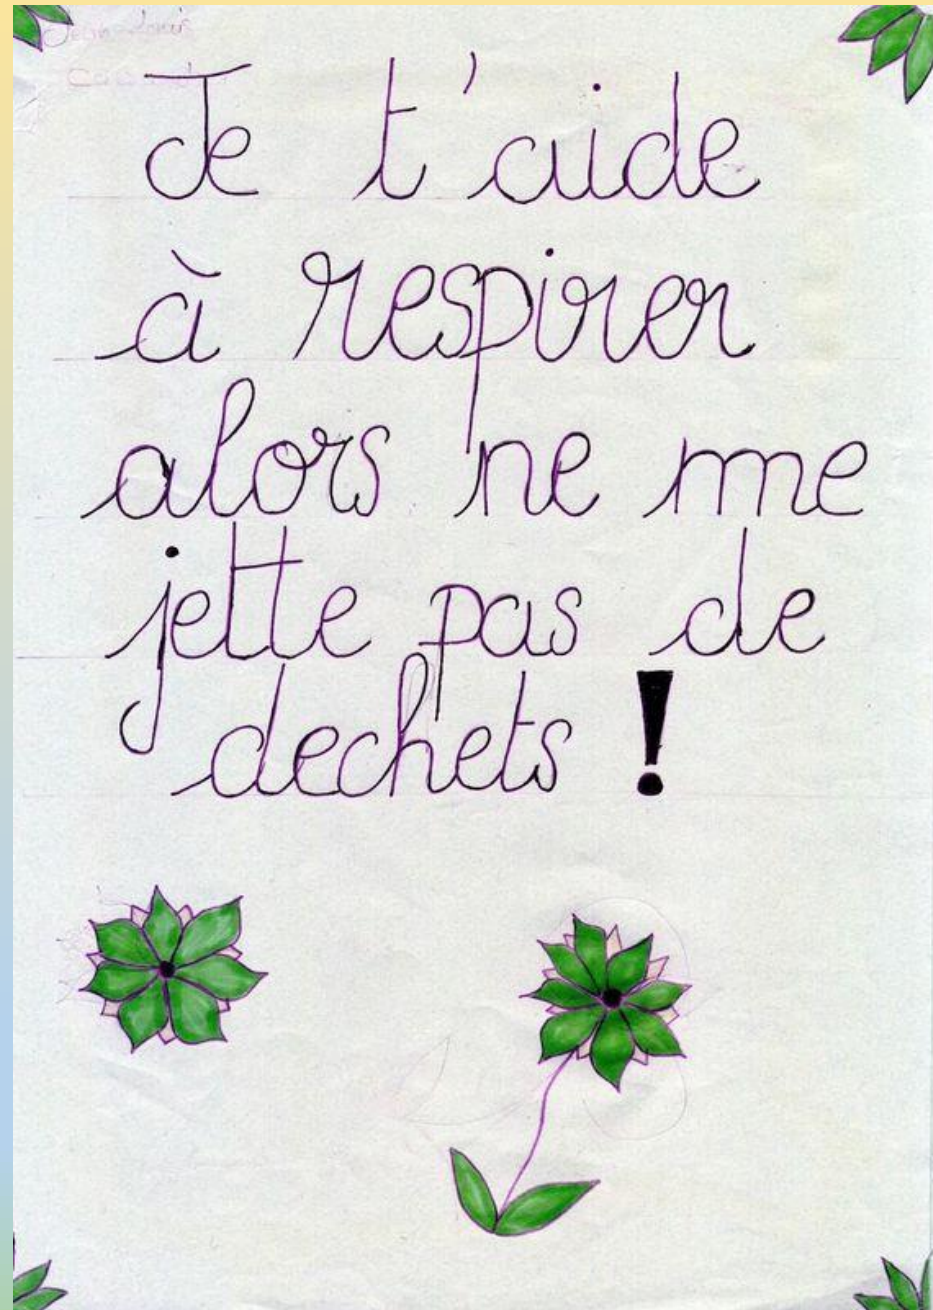 Je t'aide
à respirer
alors ne me
jette pas de
dechets !